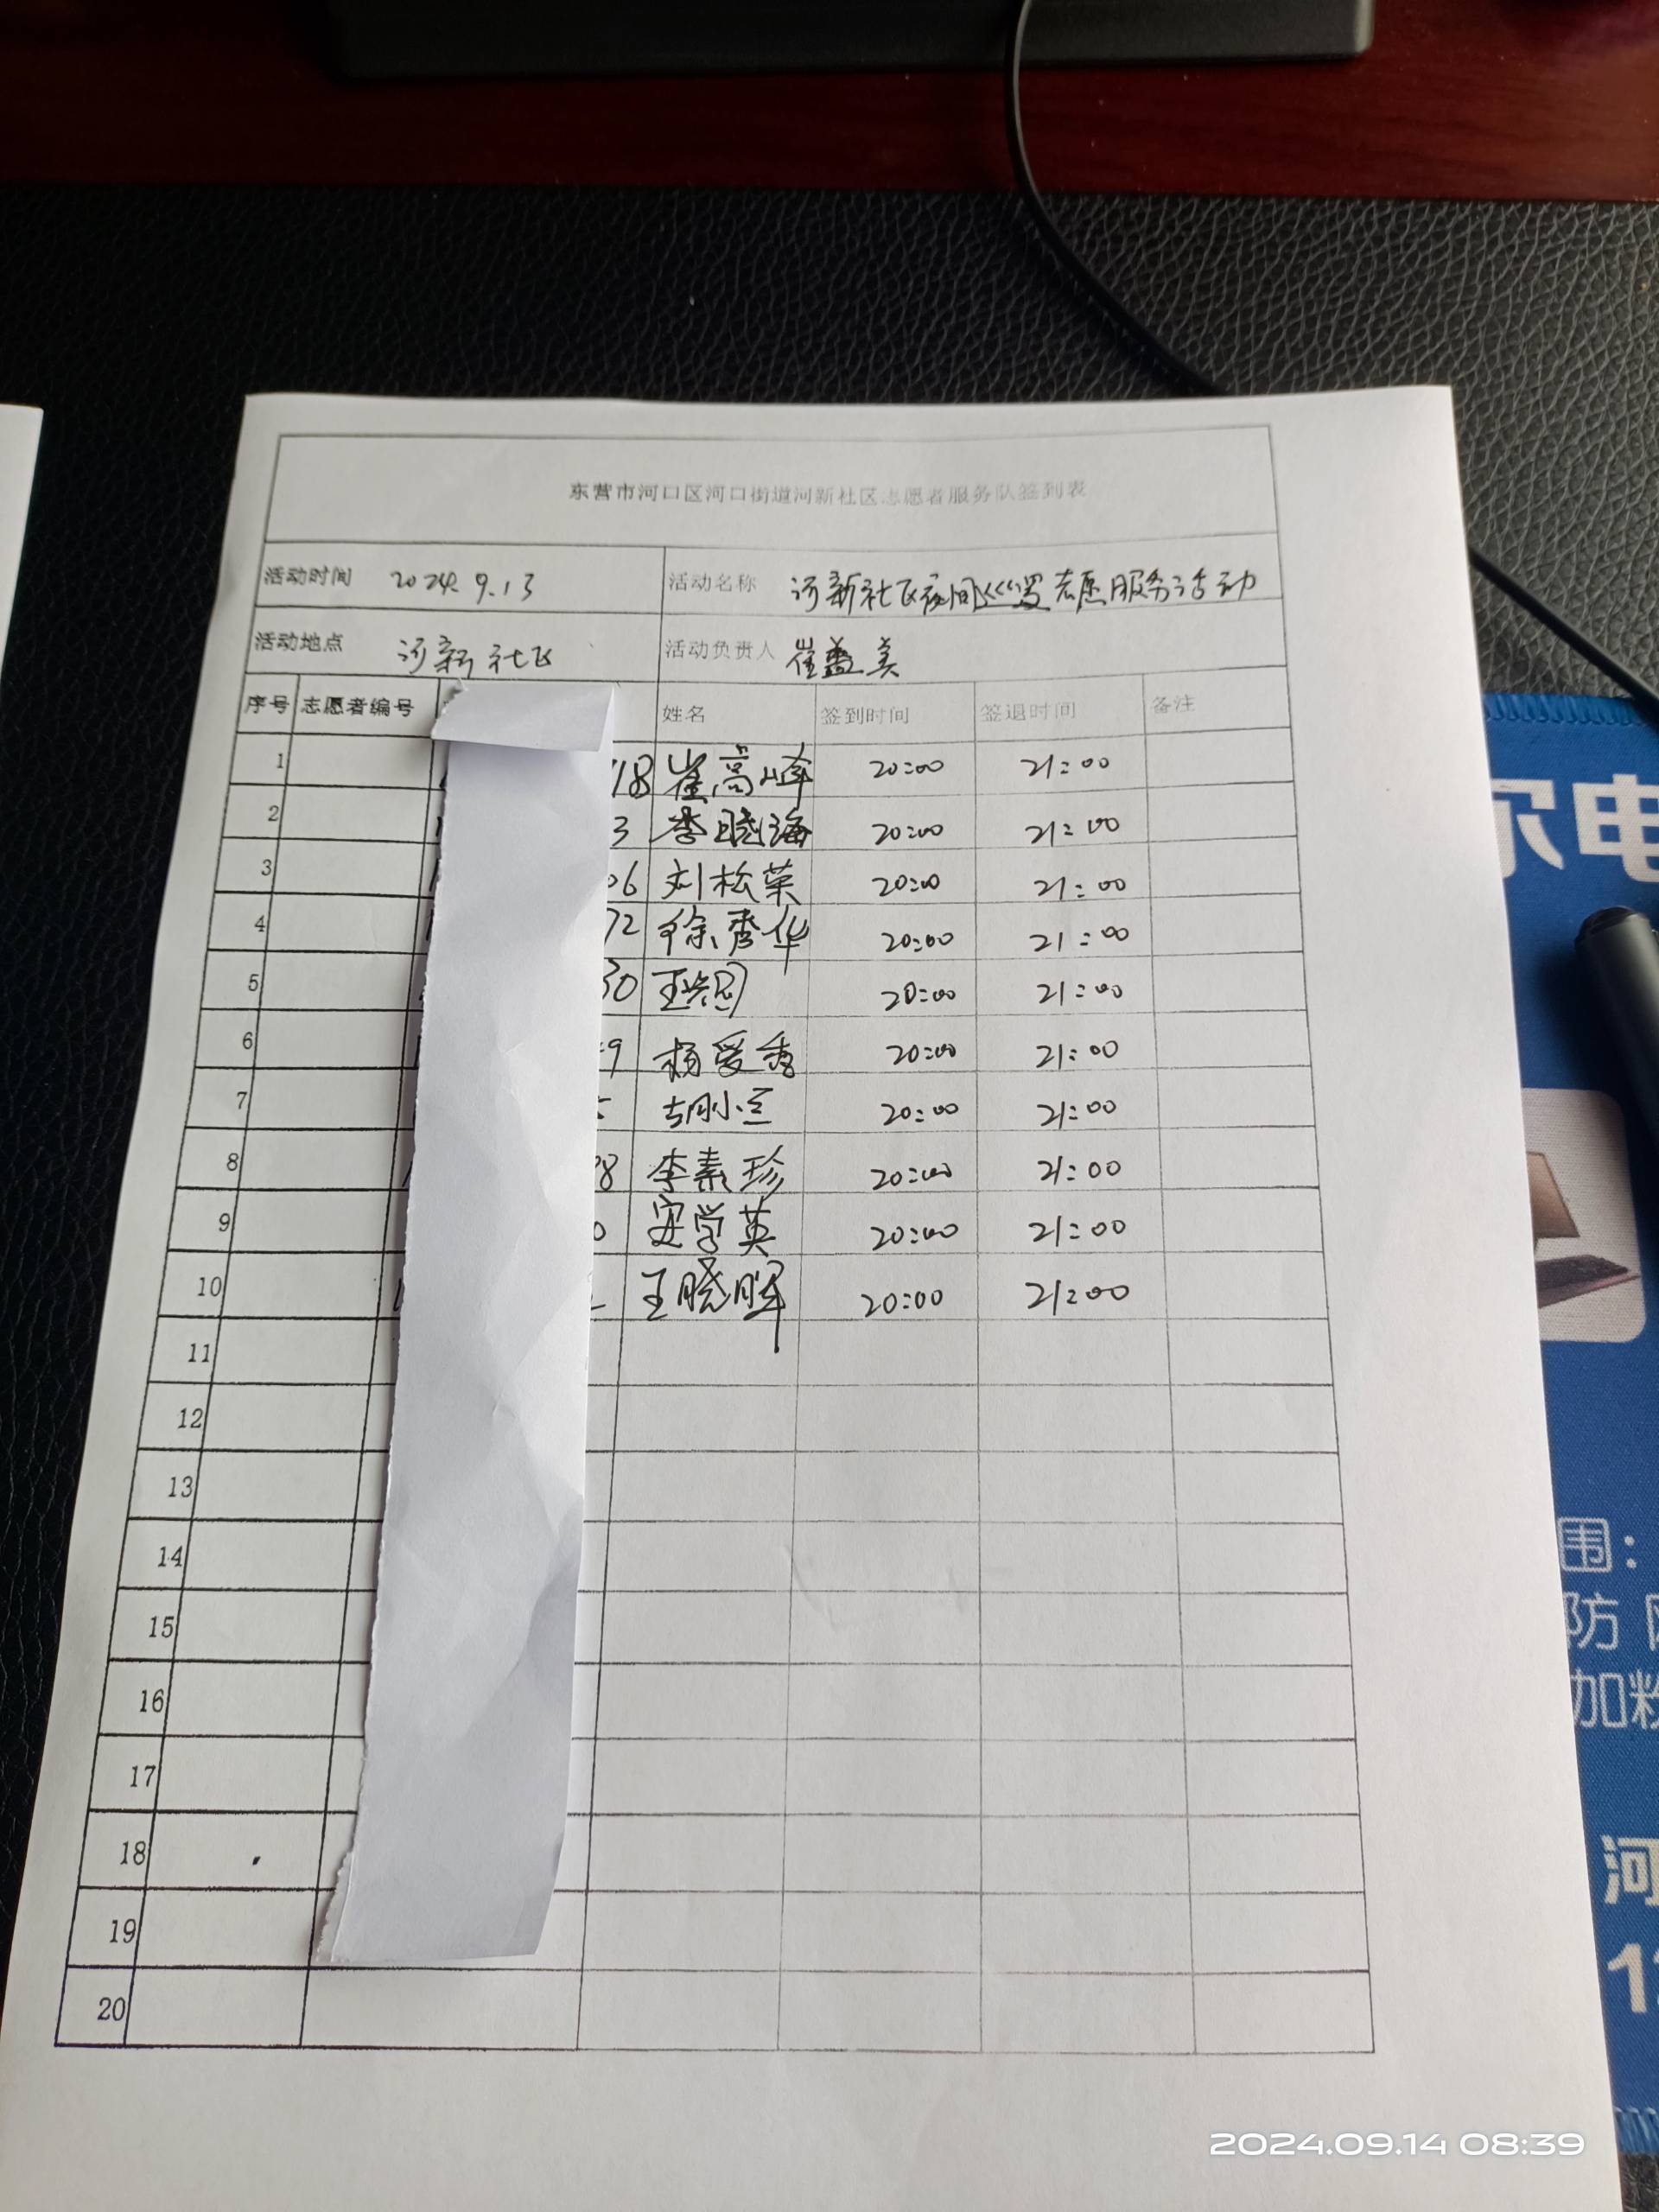 东营市河口区河口街道河新社区志愿者服务队签到表
活动时间 2024.9.13 活动名称 河新社区夜间巡逻志愿服务活动
活动地点 河新社区 活动负责人 崔盖美
序号 志愿者编号 姓名 签到时间 签退时间 备注
1 18 崔高峰 20:00 21:00
2 3 李晓海 20:00 21:00
3 06 刘松荣 20:00 21:00
4 72 徐秀华 20:00 21:00
5 30 王 20:00 21:00
6 9 杨爱香 20:00 21:00
7 胡小兰 20:00 21:00
8 98 李素珍 20:00 21:00
9 0 安学英 20:00 21:00
10 王晓晖 20:00 21:00
11
12
13
14
15
16
17
18
19
20
尔电
围:
防 网
加粉
河
13
2024.09.14 08:39